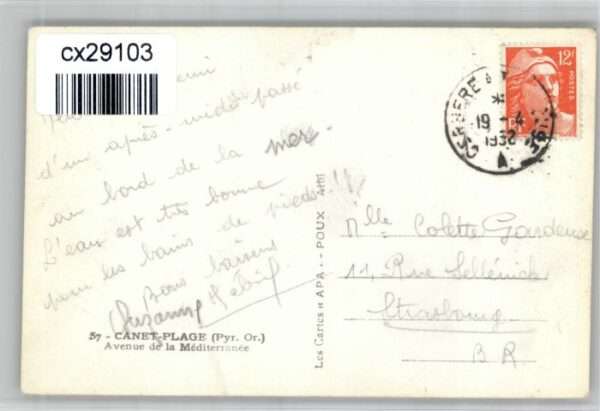 cx29103
d'un après-midi passé
au bord de la mer.
L'eau est très bonne
pour les bains de pieds !!
Bons baisers
Suzanne
57 - CANET-PLAGE (Pyr. Or.)
Avenue de la Méditerranée
Les Cartes « APA » - POUX - Albi
12F
POSTES
CERBERE
*
19 - 4
1952
Mlle Colette
11, Rue Sellénick
Strasbourg
B R.